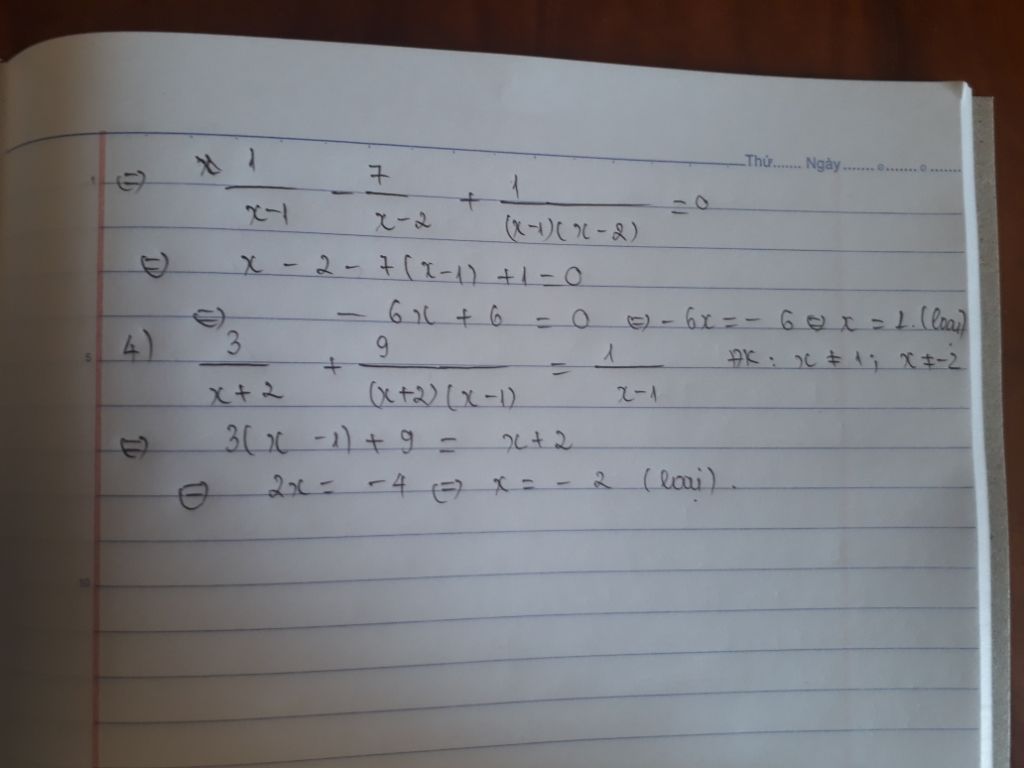 Thứ....... Ngày.......
⇔ 1/(x-1) - 7/(x-2) + 1/((x-1)(x-2)) = 0
⇔ x - 2 - 7(x-1) + 1 = 0
⇔ - 6x + 6 = 0 ⇔ - 6x = - 6 ⇔ x = 1. (loại)
4) 3/(x+2) + 9/((x+2)(x-1)) = 1/(x-1) ĐK: x ≠ 1; x ≠ -2
⇔ 3(x - 1) + 9 = x + 2
⇔ 2x = - 4 ⇔ x = - 2 (loại).